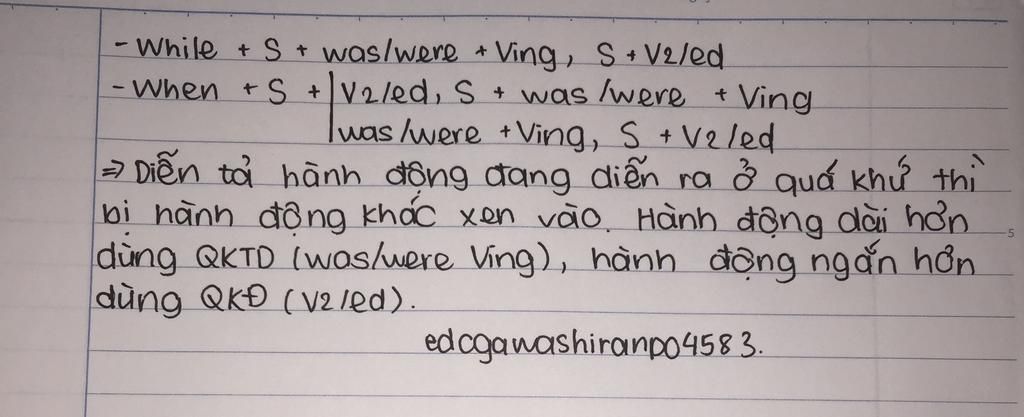 - While + S + was/were + Ving, S + V2/ed
- When + S + | V2/ed, S + was/were + Ving
| was/were + Ving, S + V2/ed
⇒ Diễn tả hành động đang diễn ra ở quá khứ thì
bị hành động khác xen vào. Hành động dài hơn
dùng QKTD (was/were Ving), hành động ngắn hơn
dùng QKĐ (V2/ed).
edcgawashiranpo4583.
5